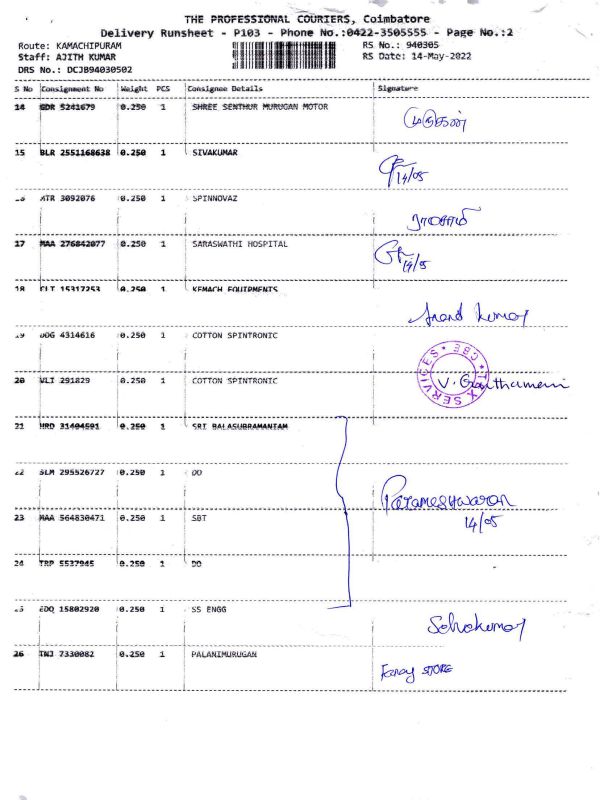 THE PROFESSIONAL COURIERS, Coimbatore
Delivery Runsheet - P103 - Phone No.:0422-3505555 - Page No.:2
Route: KAMACHIPURAM RS No.: 940305
Staff: AJITH KUMAR RS Date: 14-May-2022
DRS No.: DCJB94030502
S No Consignment No Weight PCS Consignee Details Signature
14 GDR 5241679 0.250 1 SHREE SENTHUR MURUGAN MOTOR
முருகன்
15 BLR 2551168638 0.250 1 SIVAKUMAR
14/05
16 ATR 3092076 0.250 1 SPINNOVAZ
17 MAA 276842077 0.250 1 SARASWATHI HOSPITAL
14/05
18 CLT 15317253 0.250 1 KEMACH EQUIPMENTS
Anand Kumar
19 DOG 4314616 0.250 1 COTTON SPINTRONIC
20 VLI 291829 0.250 1 COTTON SPINTRONIC
SERVICES * CBE *
21 HRD 31404591 0.250 1 SRI BALASUBRAMANIAM
22 SLM 295526727 0.250 1 DO
Parameshwaran
23 MAA 564830471 0.250 1 SBT
14/05
24 TRP 5537945 0.250 1 DO
25 EDQ 15802920 0.250 1 SS ENGG
26 TNJ 7330082 0.250 1 PALANIMURUGAN
Fancy STORE